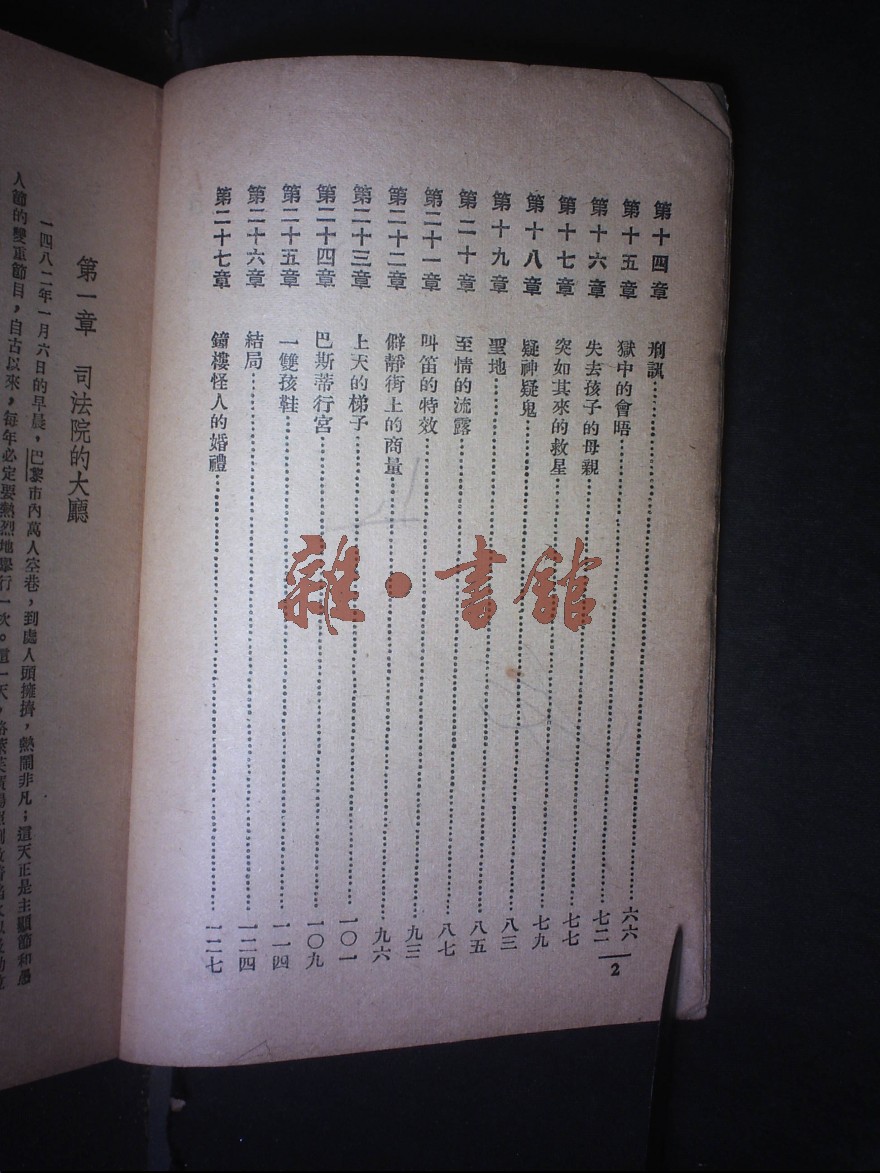 第十四章 刑訊……六六
第十五章 獄中的會晤……七二
第十六章 失去孩子的母親……七七
第十七章 突如其來的救星……七九
第十八章 疑神疑鬼……八三
第十九章 聖地……八五
第二十章 至情的流露……八七
第二十一章 叫笛的特效……九三
第二十二章 僻靜街上的商量……九六
第二十三章 上天的梯子……一〇一
第二十四章 巴斯蒂行宮……一〇九
第二十五章 一雙孩鞋……一一四
第二十六章 結局……一二四
第二十七章 鐘樓怪人的婚禮……一二七
2
雜·書館
第一章 司法院的大廳
一四八二年一月六日的早晨,巴黎市內萬人空巷,到處人頭擁擠,熱鬧非凡;這天正是主顯節和愚
人節的雙重節目,自古以來,每年必定要熱烈地舉行一次。這一天,